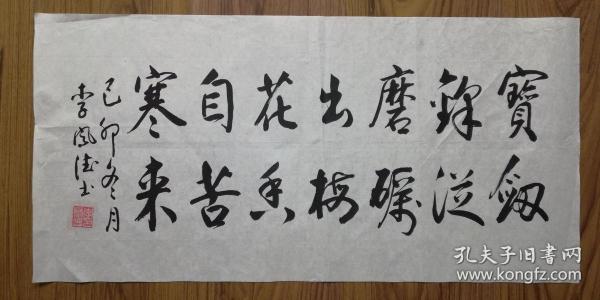 寶劔
鋒從
磨礪
出梅
花香
自苦
寒来
己卯冬月
李凤德书
孔夫子旧书网
www.kongfz.com